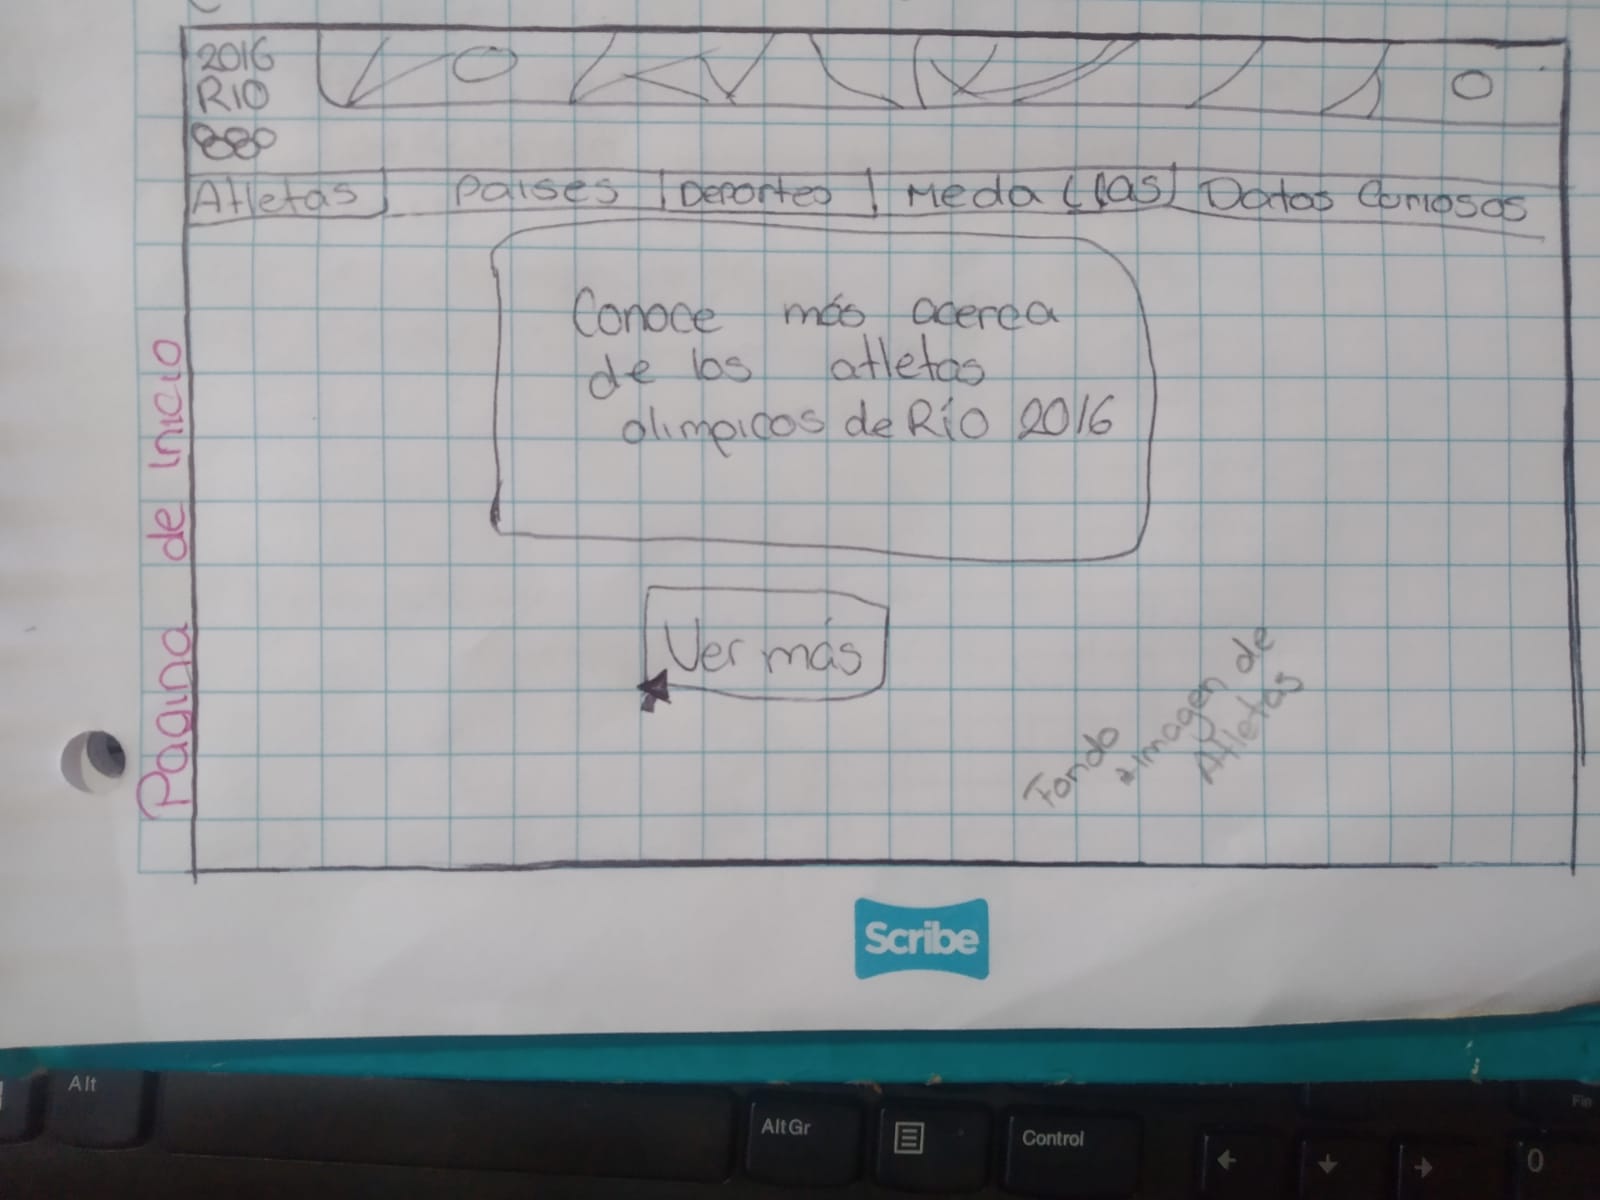 2016
RIO
Atletas Paises Deportes Medallas Datos Curiosos
Conoce más acerca
de los atletas
olimpicos de Río 2016
Ver más
Fondo
imagen de
Atletas
Pagina de Inicio
Scribe
Alt
Alt Gr
Control
Fin
0